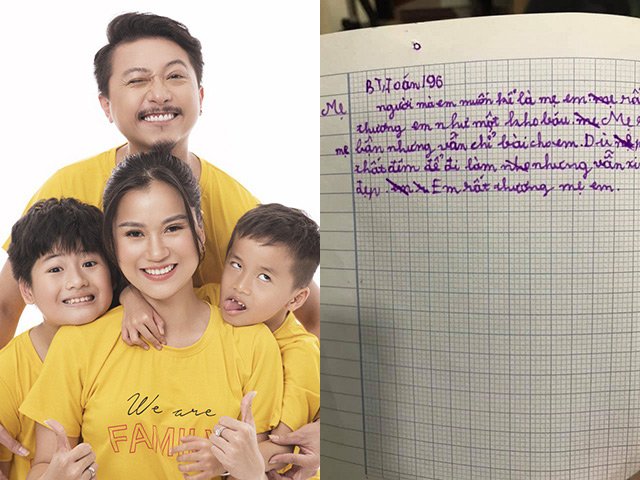 We are
FAMIL
BT, Toán 196
Mẹ người mà em muốn kể là mẹ em.
thương em như một kho báu. Mẹ
mẹ bận nhưng vẫn chỉ bài cho em. Dù
đêm để đi làm nhưng vẫn
đẹp. Em rất thương mẹ em.